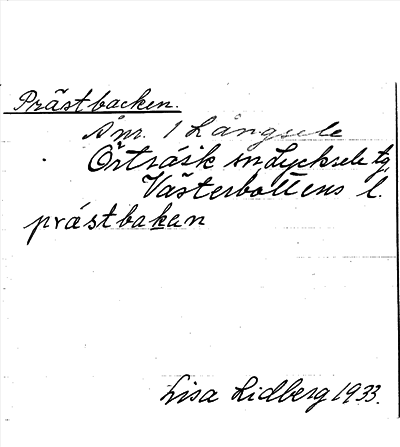 Prästbacken.
Å nr. 1 Långsele
Örträsk sn Lycksele tg,
Västerbottens l.
prástbakan
Lisa Lidberg 1933.